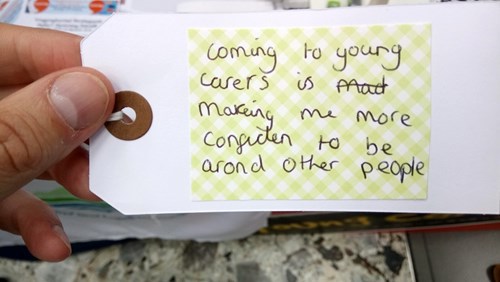 coming to young
carers is mad
making me more
confiden to be
arond other people